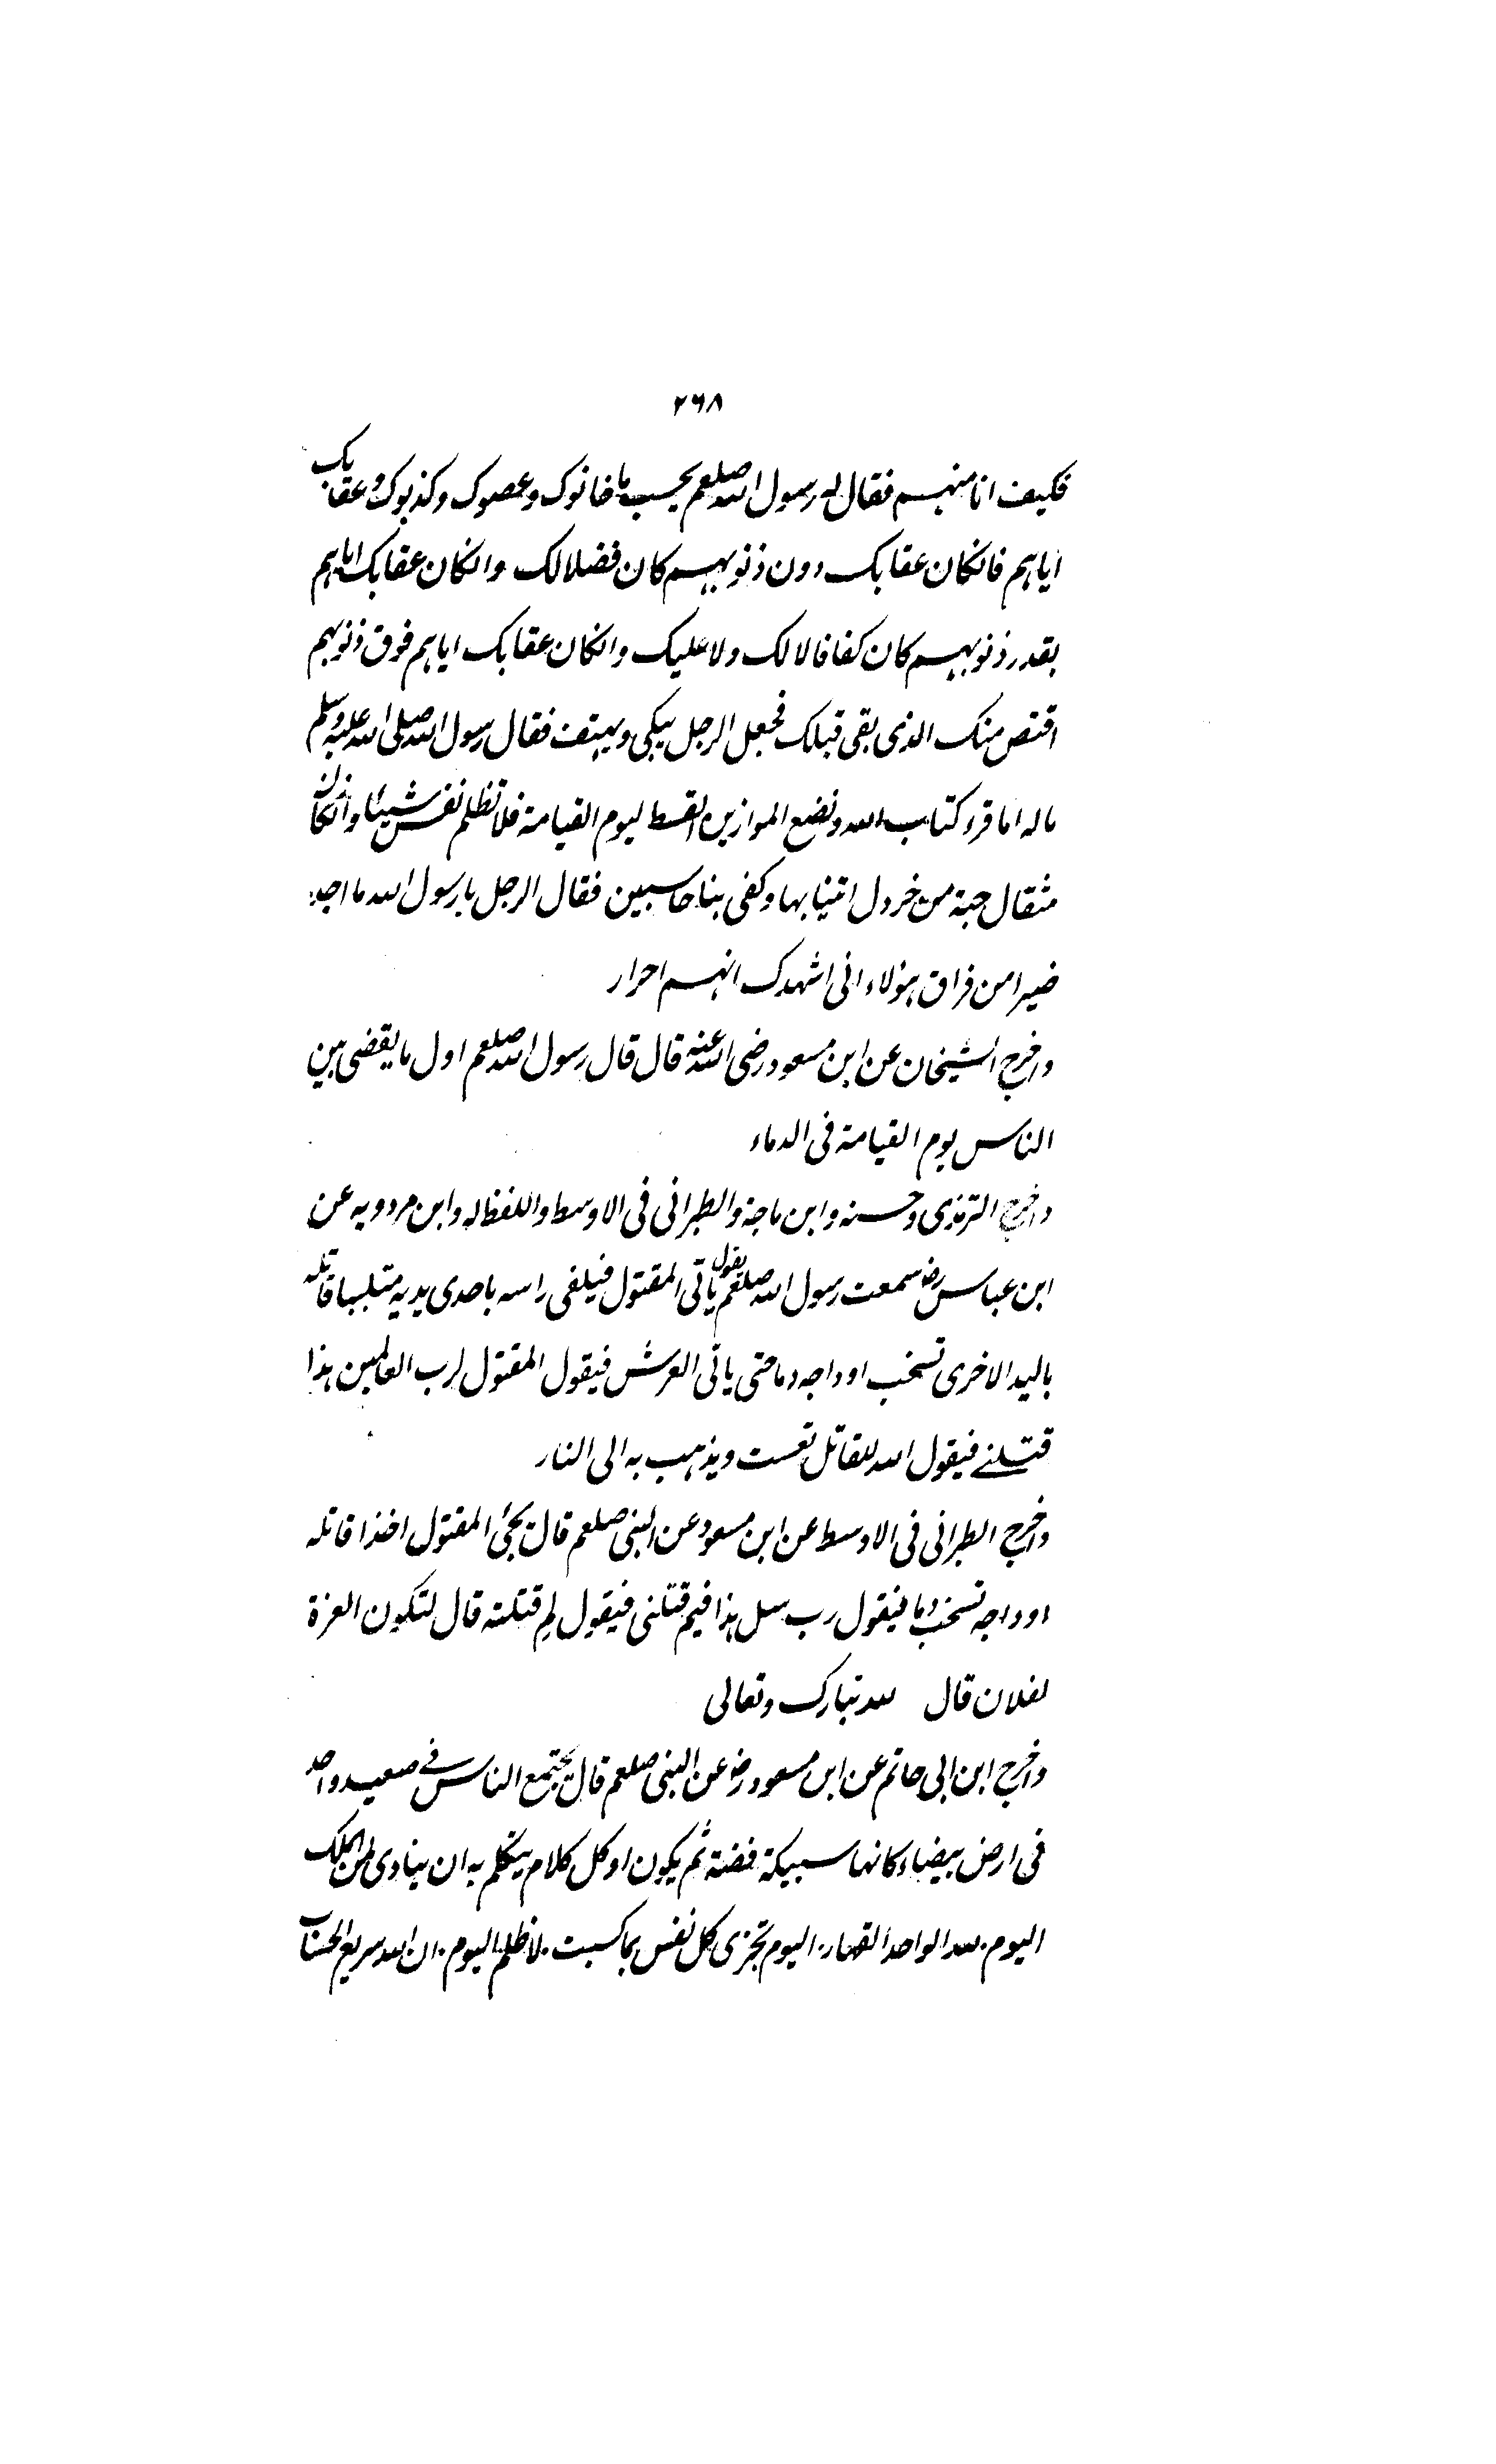 ٢٦٨
فکیف انا منہم فقال لہ رسول اللہ صلعم یحسب ما خانوک وعصوک وکذبوک وعقابک
ایاہم فانکان عقابک دون ذنوبہم کان فضلا لک وانکان عقابک ایاہم
بقدر ذنوبہم کان کفافا لا لک ولا علیک وانکان عقابک ایاہم فوق ذنوبہم
اقتص منک الذی بقی قبلک فجعل الرجل یبکی ویہتف فقال رسول اللہ صلی اللہ علیہ وسلم
مالہ اما قرء کتاب اللہ ونضع الموازین القسط لیوم القیامۃ فلا تظلم نفس شیئا وانکان
مثقال حبۃ من خردل اتینا بہا وکفی بنا حاسبین فقال الرجل یا رسول اللہ ما اجد
خیرا من فراق ہؤلاء انی اشہدک انہم احرار
واخرج الشیخان عن ابن مسعود رضی اللہ عنہ قال قال رسول اللہ صلعم اول ما یقضی بین
الناس یوم القیامۃ فی الدماء
واخرج الترمذی وحسنہ وابن ماجۃ والطبرانی فی الاوسط واللفظ لہ وابن مردویہ عن
ابن عباس رض سمعت رسول اللہ صلعم یقول یاتی المقتول فیلقی راسہ باحدی یدیہ متلببا قاتلہ
بالید الاخری تسخب اوداجہ دما حتی یاتی العرش فیقول المقتول لرب العالمین ہذا
قتلنے فیقول اللہ للقاتل تعست ویذہب بہ الی النار
واخرج الطبرانی فی الاوسط عن ابن مسعود عن النبی صلعم قال یجئ المقتول اخذا قاتلہ
اوداجہ تسخب دما فیقول رب سل ہذا فیم قتلنی فیقول لم قتلتہ قال لتکون العزۃ
لفلان قال للہ تبارک وتعالی
واخرج ابن ابی حاتم عن ابن مسعود رض عن النبی صلعم قال یجتمع الناس فے صعید واحد
فی ارض بیضاء کانہا سبیکۃ فضۃ ثم یکون اوکل کلام یتکلم بہ ان ینادی لمن الملک
الیوم۔ للہ الواحد القہار۔ الیوم تجزی کل نفس بما کسبت۔ لا ظلم الیوم۔ ان اللہ سریع الحساب